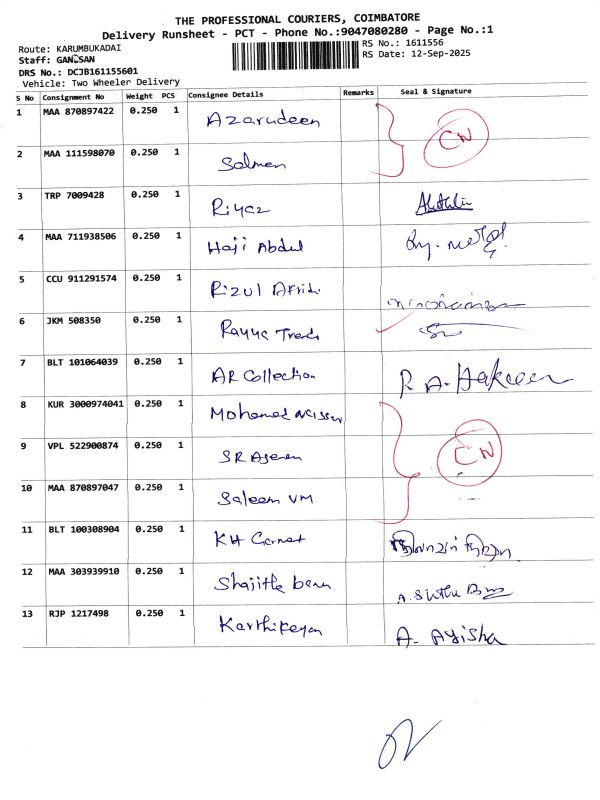 THE PROFESSIONAL COURIERS, COIMBATORE
Delivery Runsheet - PCT - Phone No.:9047080280 - Page No.:1
Route: KARUMBUKADAI
RS No.: 1611556
Staff: GANESAN
RS Date: 12-Sep-2025
DRS No.: DCJB161155601
Vehicle: Two Wheeler Delivery
S No Consignment No Weight PCS Consignee Details Remarks Seal & Signature
1 MAA 870897422 0.250 1 Azarudeen
CN
2 MAA 111598070 0.250 1 Salman
3 TRP 7009428 0.250 1 Riyaz
4 MAA 711938506 0.250 1 Haji Abdul
5 CCU 911291574 0.250 1 Rizul Afridi
6 JKM 508350 0.250 1 Rayya Trends
7 BLT 101064039 0.250 1 AR Collection R.A. Hakeem
8 KUR 3000974041 0.250 1 Mohamed
9 VPL 522900874 0.250 1 SR CN
10 MAA 870897047 0.250 1 Saleem VM
11 BLT 100308904 0.250 1 KH
12 MAA 303939910 0.250 1 Shajitha banu
13 RJP 1217498 0.250 1 Karthikeyan A. Ayisha